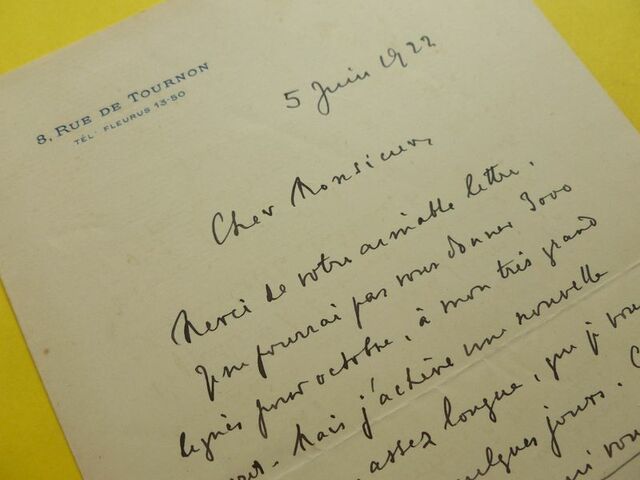 8, RUE DE TOURNON
TÉL. FLEURUS 13-50
5 Juin 1922
Cher Monsieur,
Merci de votre aimable lettre.
Je ne pourrai pas vous donner 3000
lignes pour octobre, à mon très grand
Mais j'achève une nouvelle
assez longue, que je
quelques jours.